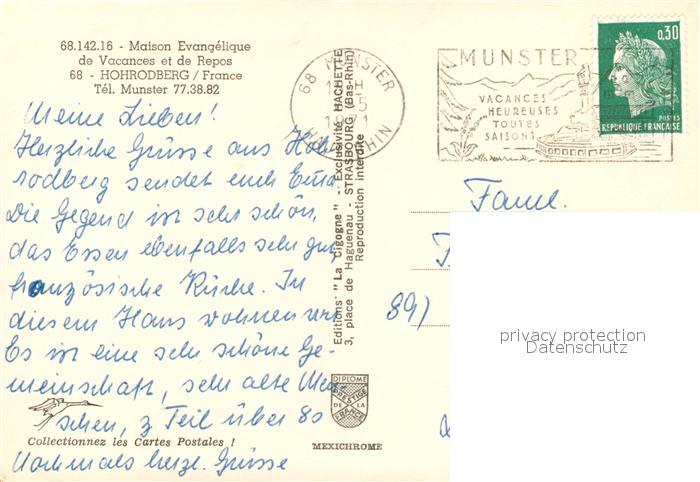 68.142.16 - Maison Evangélique
de Vacances et de Repos
68 - HOHRODBERG / France
Tél. Munster 77.38.82
Meine Lieben!
Herzliche Grüsse aus Hoh
rodberg sendet euch Erna
Die Gegend ist sehr schön,
das Essen ebenfalls sehr gut,
französische Küche. In
diesem Haus wohnen wir
Es ist eine sehr schöne Ge-
meinschaft, sehr alte Men-
schen, z Teil über 80
Collectionnez les Cartes Postales !
Nochmals herzl. Grüsse
Editions "La Cigogne" - Exclusivité HACHETTE
3, place de Haguenau - STRASBOURG (Bas-Rhin)
Reproduction interdite
DIPLOME
PRESTIGE
DE LA
FRANCE
MEXICHROME
68 MUNSTER
MUNSTER
VACANCES
HEUREUSES
TOUTES
SAISONS
0,30
POSTES
REPUBLIQUE FRANÇAISE
Fam.
891
privacy protection
Datenschutz